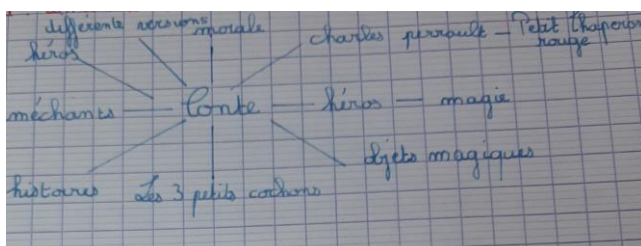 différente versions morale
héros charles perrault — Petit Chaperon
rouge
méchants — Conte — héros — magie
objets magiques
histoires Les 3 petits cochons